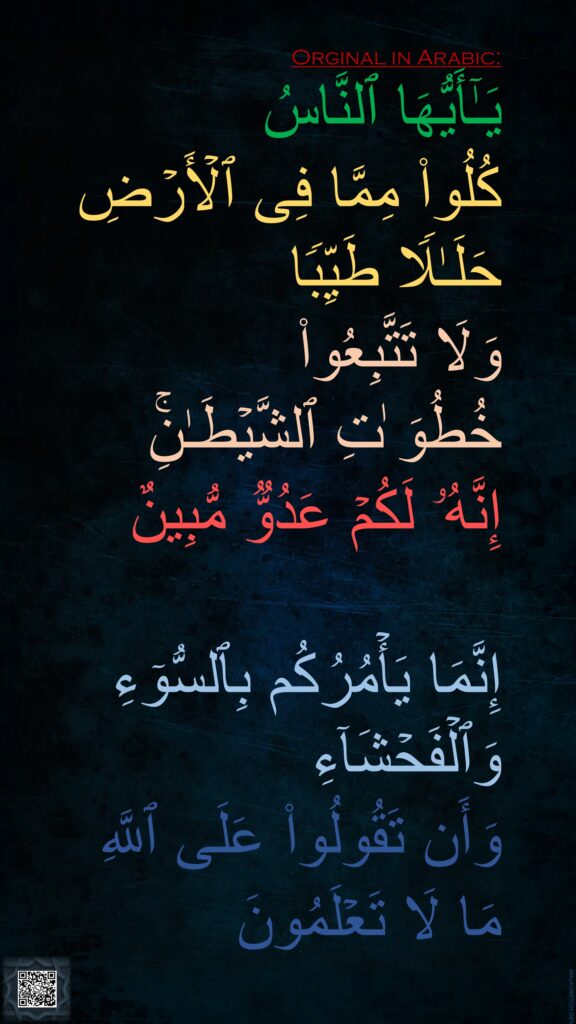 Orginal in Arabic:
يَـٰٓأَيُّهَا ٱلنَّاسُ
كُلُوا۟ مِمَّا فِى ٱلْأَرْضِ
حَلَـٰلًا طَيِّبًا
وَلَا تَتَّبِعُوا۟
خُطُوَٰتِ ٱلشَّيْطَـٰنِ ۚ
إِنَّهُۥ لَكُمْ عَدُوٌّ مُّبِينٌ
إِنَّمَا يَأْمُرُكُم بِٱلسُّوٓءِ
وَٱلْفَحْشَآءِ
وَأَن تَقُولُوا۟ عَلَى ٱللَّهِ
مَا لَا تَعْلَمُونَ